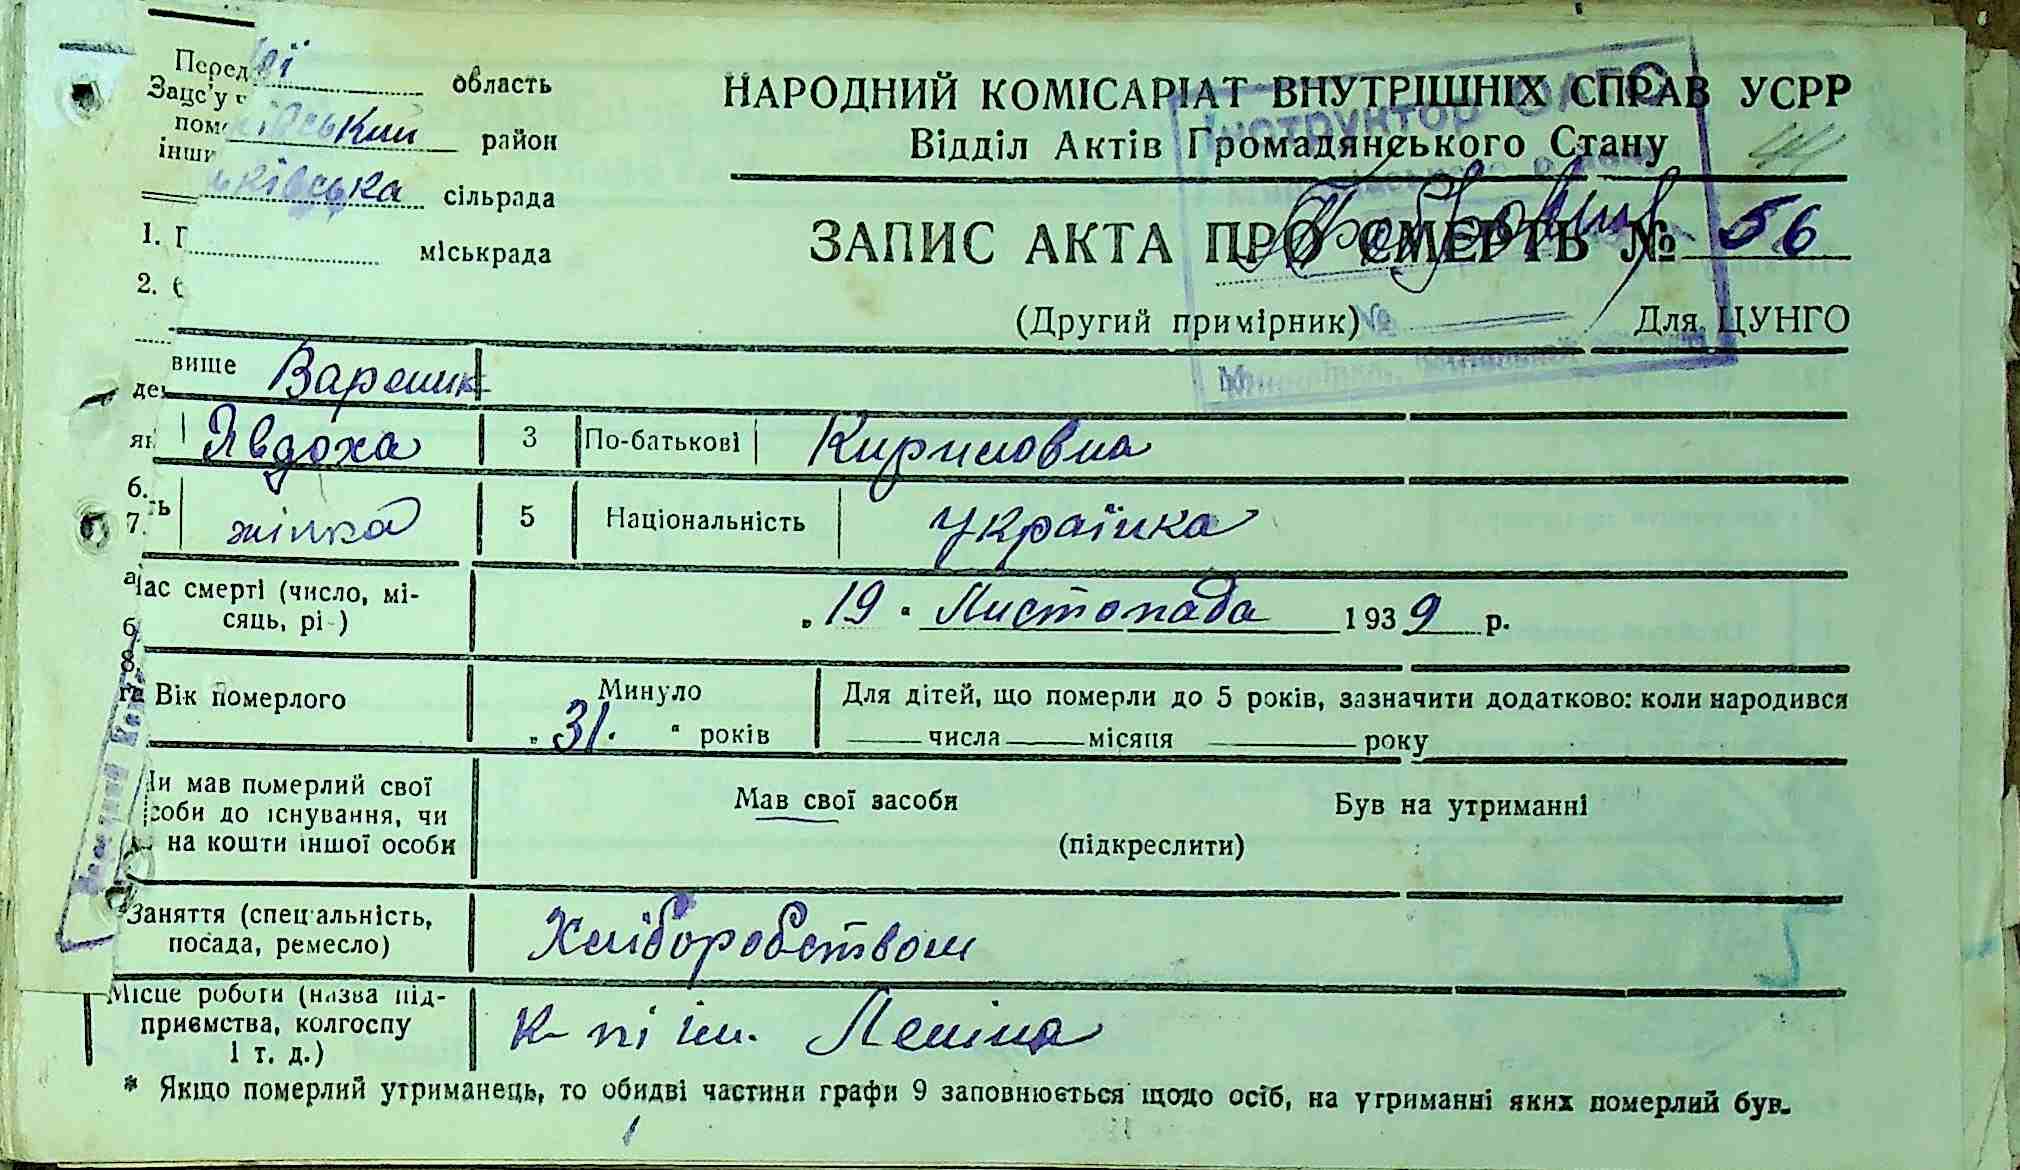 область
район
сільрада
міськрада
НАРОДНИЙ КОМІСАРІАТ ВНУТРІШНІХ СПРАВ УСРР
Відділ Актів Громадянського Стану
44
ЗАПИС АКТА ПРО СМЕРТЬ № 56
(Другий примірник) № Для ЦУНГО
вище Вареник
Явдоха 3 По-батькові Кириловна
жінка 5 Національність українка
Час смерті (число, мі-
сяць, рі ) „19" Листопада 1939 р.
Вік померлого Минуло „31" років
Для дітей, що померли до 5 років, зазначити додатково: коли народився
числа місяця року
Чи мав померлий свої
соби до існування, чи
на кошти іншої особи
Мав свої засоби Був на утриманні
(підкреслити)
Заняття (спеціальність,
посада, ремесло) Хліборобством
Місце роботи (назва під-
приємства, колгоспу
і т. д.) К-пі ім. Леніна
* Якщо померлий утриманець, то обидві частини графи 9 заповнюється щодо осіб, на утриманні яких померлий був.